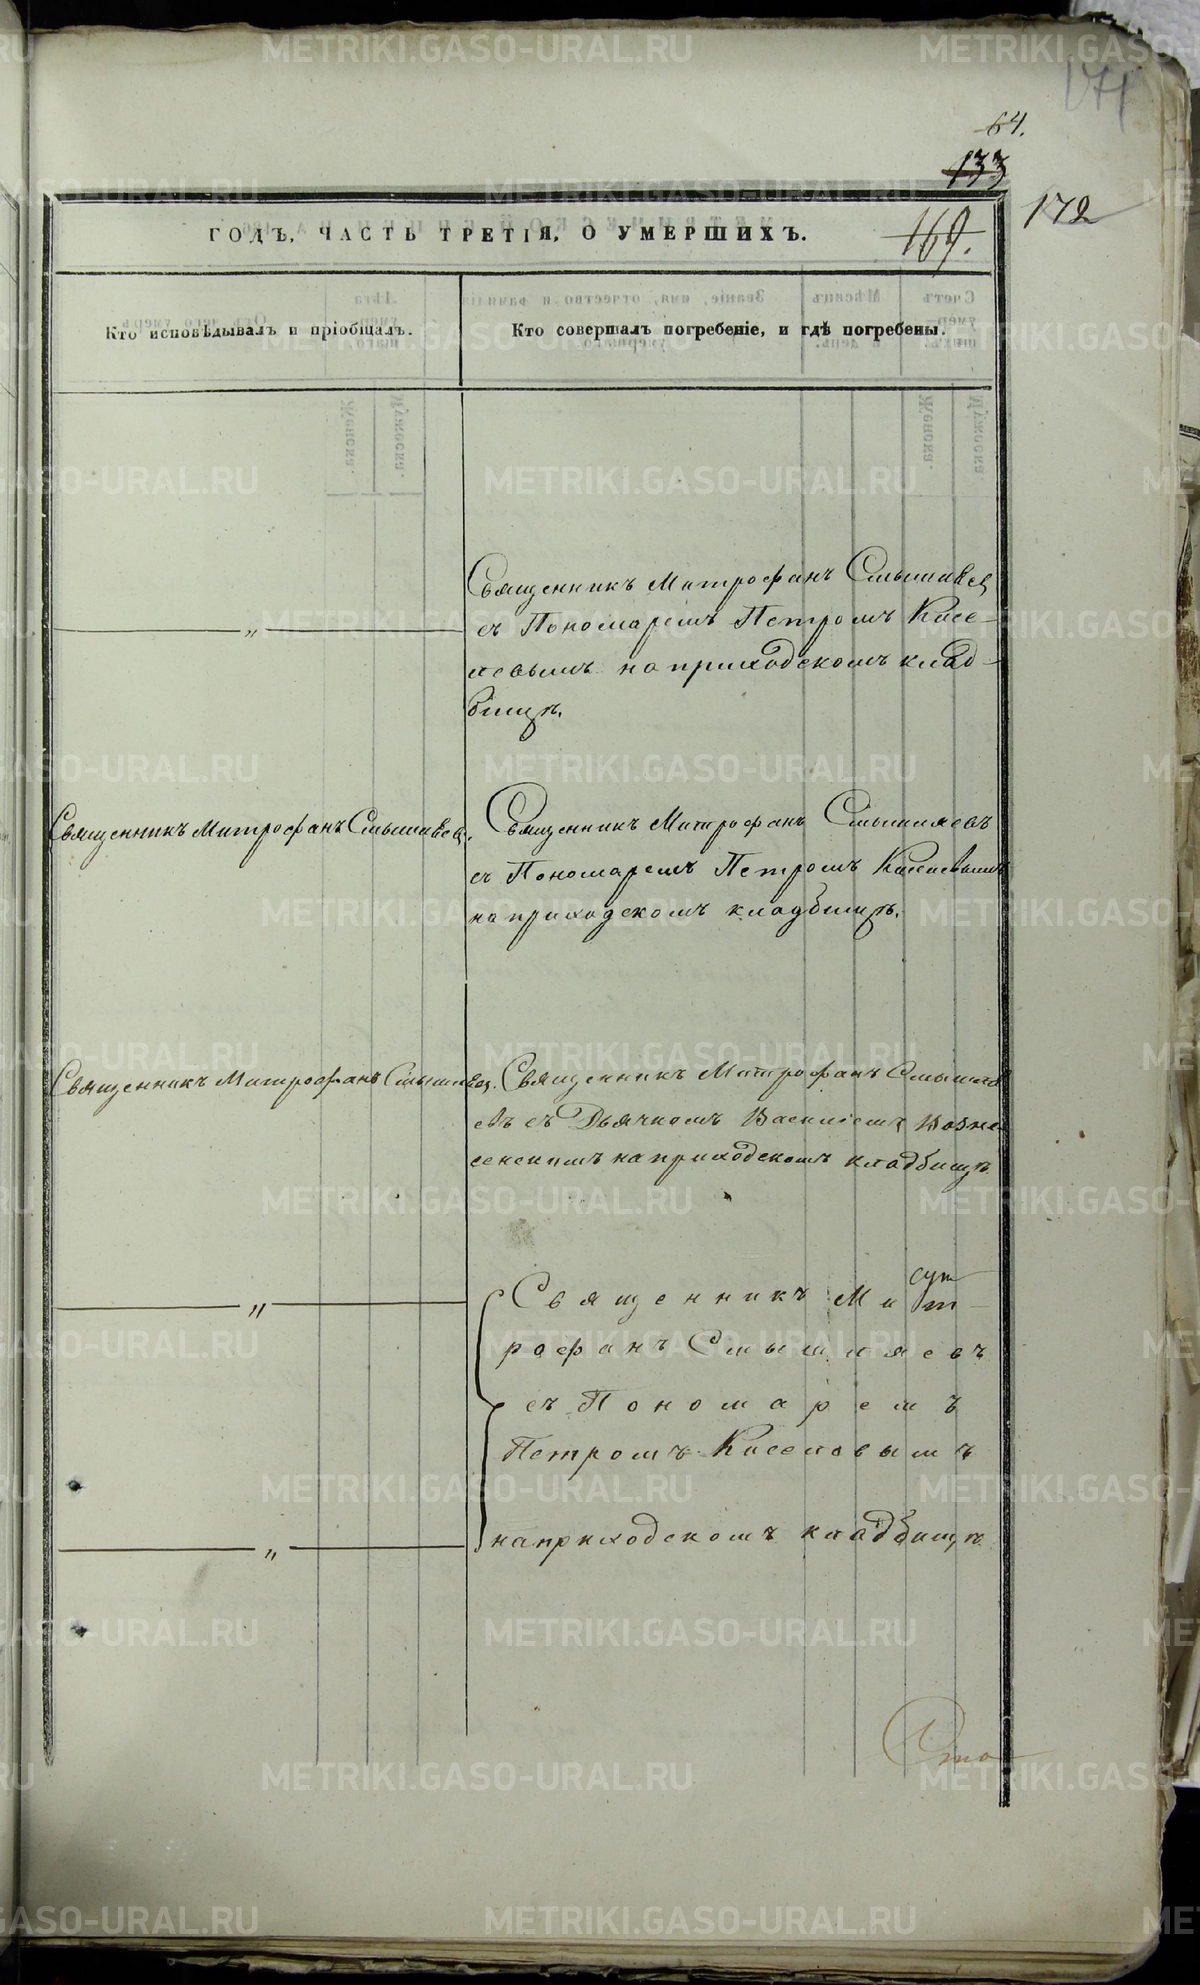 171
64.
133
172
ГОДЪ, ЧАСТЬ ТРЕТІЯ, О УМЕРШИХЪ.
169.
Кто исповѣдывалъ и пріобщалъ.
Кто совершалъ погребеніе, и гдѣ погребены.
Священникъ Митрофанъ Смышляевъ
съ Пономаремъ Петромъ Кисе-
левымъ на приходскомъ клад-
бищѣ.
"
Священникъ Митрофанъ Смышляевъ.
Священникъ Митрофанъ Смышляевъ
съ Пономаремъ Петромъ Киселевымъ
на приходскомъ кладбищѣ.
Священникъ Митрофанъ Смышляевъ.
Священникъ Митрофанъ Смышля
евъ съ Дьячкомъ Василіемъ Возне
сенскимъ на приходскомъ кладбищѣ
"
Священникъ Мит-
рофанъ Смышляевъ
съ Пономаремъ
Петромъ Киселевымъ
на приходскомъ кладбищѣ
"
METRIKI.GASO-URAL.RU